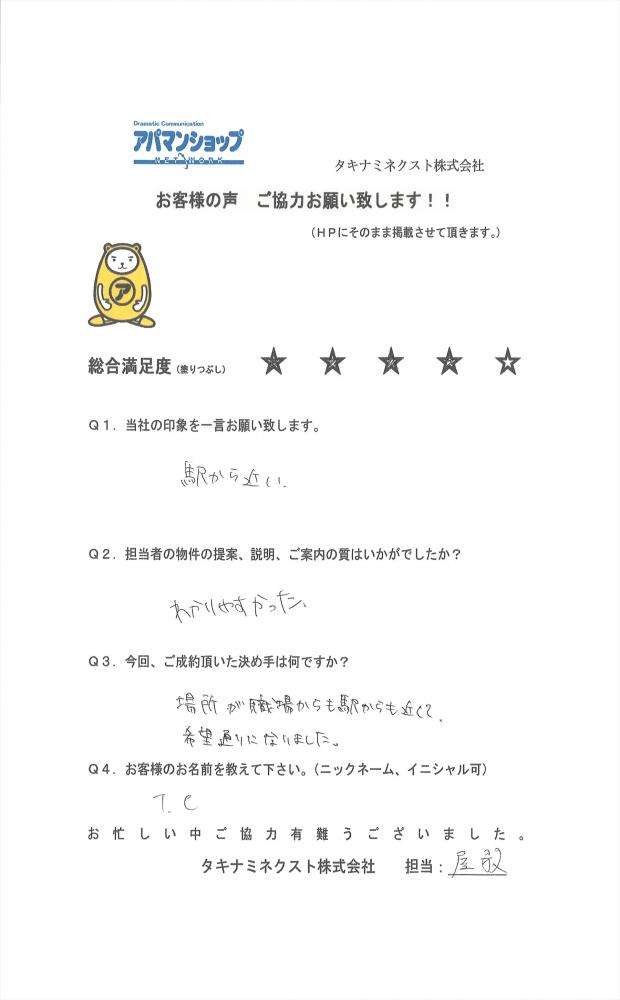 Dramatic Communication
アパマンショップ
NETWORK
タキナミネクスト株式会社
お客様の声 ご協力お願い致します！！
（ＨＰにそのまま掲載させて頂きます。）
ア
総合満足度（塗りつぶし） ★ ★ ★ ★ ☆
Ｑ１．当社の印象を一言お願い致します。
駅から近い.
Ｑ２．担当者の物件の提案、説明、ご案内の質はいかがでしたか？
わかりやすかった、
Ｑ３．今回、ご成約頂いた決め手は何ですか？
場所が職場からも駅からも近くて、
希望通りになりました。
Ｑ４．お客様のお名前を教えて下さい。（ニックネーム、イニシャル可）
T. C
お忙しい中ご協力有難うございました。
タキナミネクスト株式会社 担当：屋敷